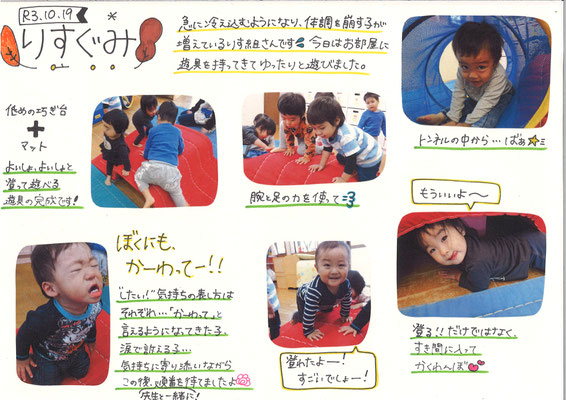 R3.10.19
りすぐみ
急に冷え込むようになり、体調を崩す子が
増えているりす組さんです 今日はお部屋に
遊具を持ってきてゆったりと遊びました。
低めの巧ぎ台
+
マット
よいしょ、よいしょと
登って遊べる
遊具の完成です!
腕と足の力を使って
トンネルの中から…ばぁ
ぼくにも、
かーわってー!!
"したい!"気持ちの表し方は
それぞれ…「かーわって」と
言えるようになってきた子、
涙で訴える子…
気持ちに寄り添いながら
この後、順番を待てましたよ
(先生と一緒に!)
登れたよー!
すごいでしょー!
もういいよ〜
登る!!だけではなく、
すき間に入って
かくれんぼ